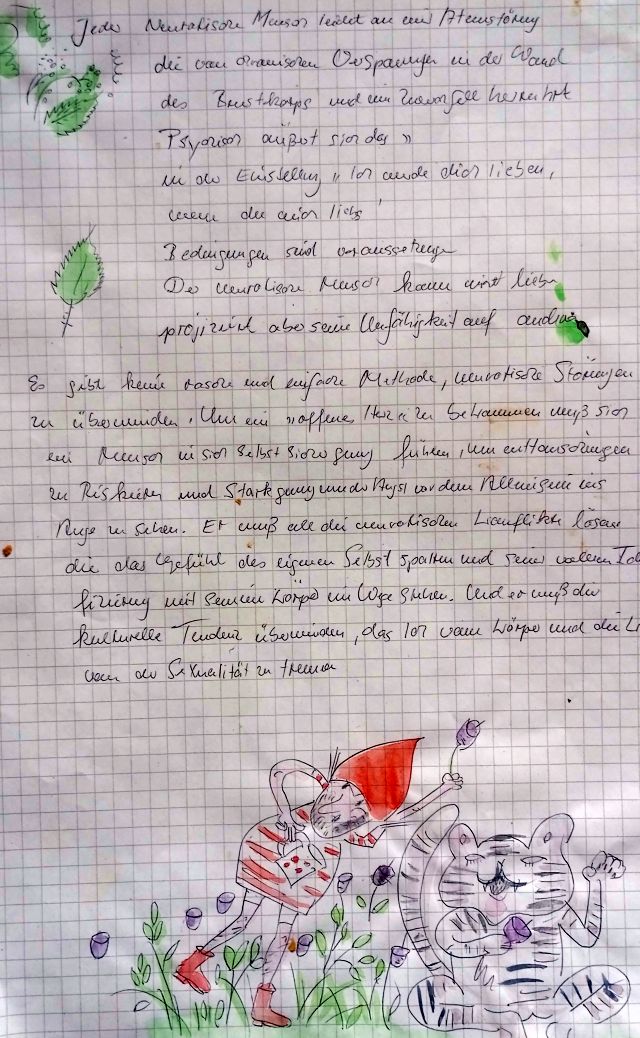 Jeder Neurotische Mensch leidet an einer Atemstörung
die von chronischen Verspannungen in der Wand
des Brustkorps und im herrührt
Psychisch äußert sich das "
in der Einstellung "Ich würde dich lieben,
wenn du mich liebs'
Bedingungen sind voraussetzung
Der neurotische Mensch kann nicht lieben
projiziert aber seine Unfähigkeit auf andre
Es gibt keine rasche und einfache Methode, neurotische Störungen
zu überwinden. Um ein "offenes Herz" zu bekommen muß sich
ein Mensch in sich selbst führen, um
zu Riskieren und und der Angst vor dem Alleinsein ins
Auge zu sehen. Er muß all die neurotischen Konflikte lösen
die das Gefühl des eigenen Selbst spalten und seiner vollen Id
fizierung mit seinem Körper im Wege stehen. Und er muß die
kulturelle Tendenz überwinden, das Ich vom Körper und die Li
von der Sexualität zu trennen